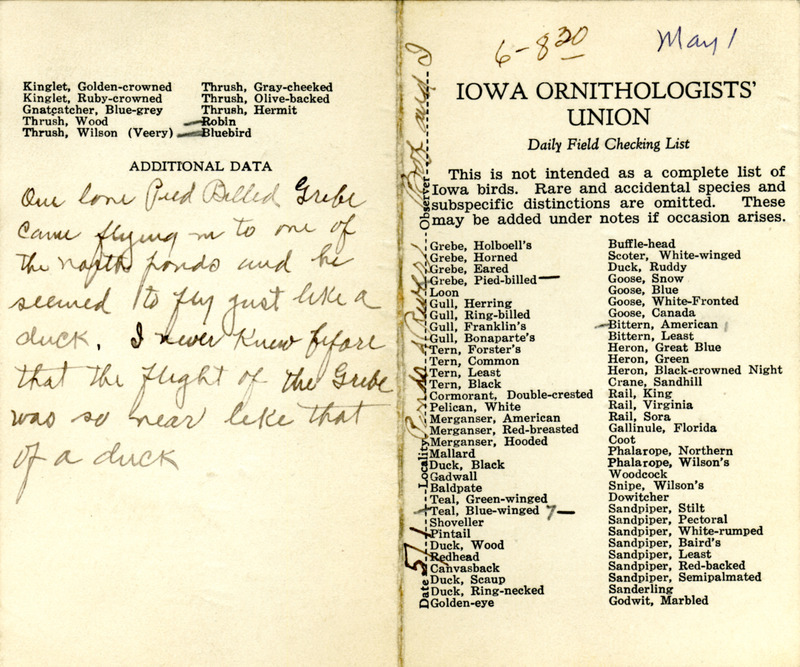 Kinglet, Golden-crowned
Kinglet, Ruby-crowned
Gnatcatcher, Blue-grey
Thrush, Wood
Thrush, Wilson (Veery)
Thrush, Gray-cheeked
Thrush, Olive-backed
Thrush, Hermit
Robin
Bluebird
ADDITIONAL DATA
One lone Pied Billed Grebe
came flying in to one of
the north ponds and he
seemed to fly just like a
duck. I never knew before
that the flight of the Grebe
was so near like that
of a duck
6-8 30
May 1
IOWA ORNITHOLOGISTS'
UNION
Daily Field Checking List
This is not intended as a complete list of
Iowa birds. Rare and accidental species and
subspecific distinctions are omitted. These
may be added under notes if occasion arises.
Date 5/1 Locality Ponds & River Observer and I
Grebe, Holboell's
Grebe, Horned
Grebe, Eared
Grebe, Pied-billed —
Loon
Gull, Herring
Gull, Ring-billed
Gull, Franklin's
Gull, Bonaparte's
Tern, Forster's
Tern, Common
Tern, Least
Tern, Black
Cormorant, Double-crested
Pelican, White
Merganser, American
Merganser, Red-breasted
Merganser, Hooded
Mallard
Duck, Black
Gadwall
Baldpate
Teal, Green-winged
Teal, Blue-winged 7—
Shoveller
Pintail
Duck, Wood
Redhead
Canvasback
Duck, Scaup
Duck, Ring-necked
Golden-eye
Buffle-head
Scoter, White-winged
Duck, Ruddy
Goose, Snow
Goose, Blue
Goose, White-Fronted
Goose, Canada
Bittern, American 1
Bittern, Least
Heron, Great Blue
Heron, Green
Heron, Black-crowned Night
Crane, Sandhill
Rail, King
Rail, Virginia
Rail, Sora
Gallinule, Florida
Coot
Phalarope, Northern
Phalarope, Wilson's
Woodcock
Snipe, Wilson's
Dowitcher
Sandpiper, Stilt
Sandpiper, Pectoral
Sandpiper, White-rumped
Sandpiper, Baird's
Sandpiper, Least
Sandpiper, Red-backed
Sandpiper, Semipalmated
Sanderling
Godwit, Marbled